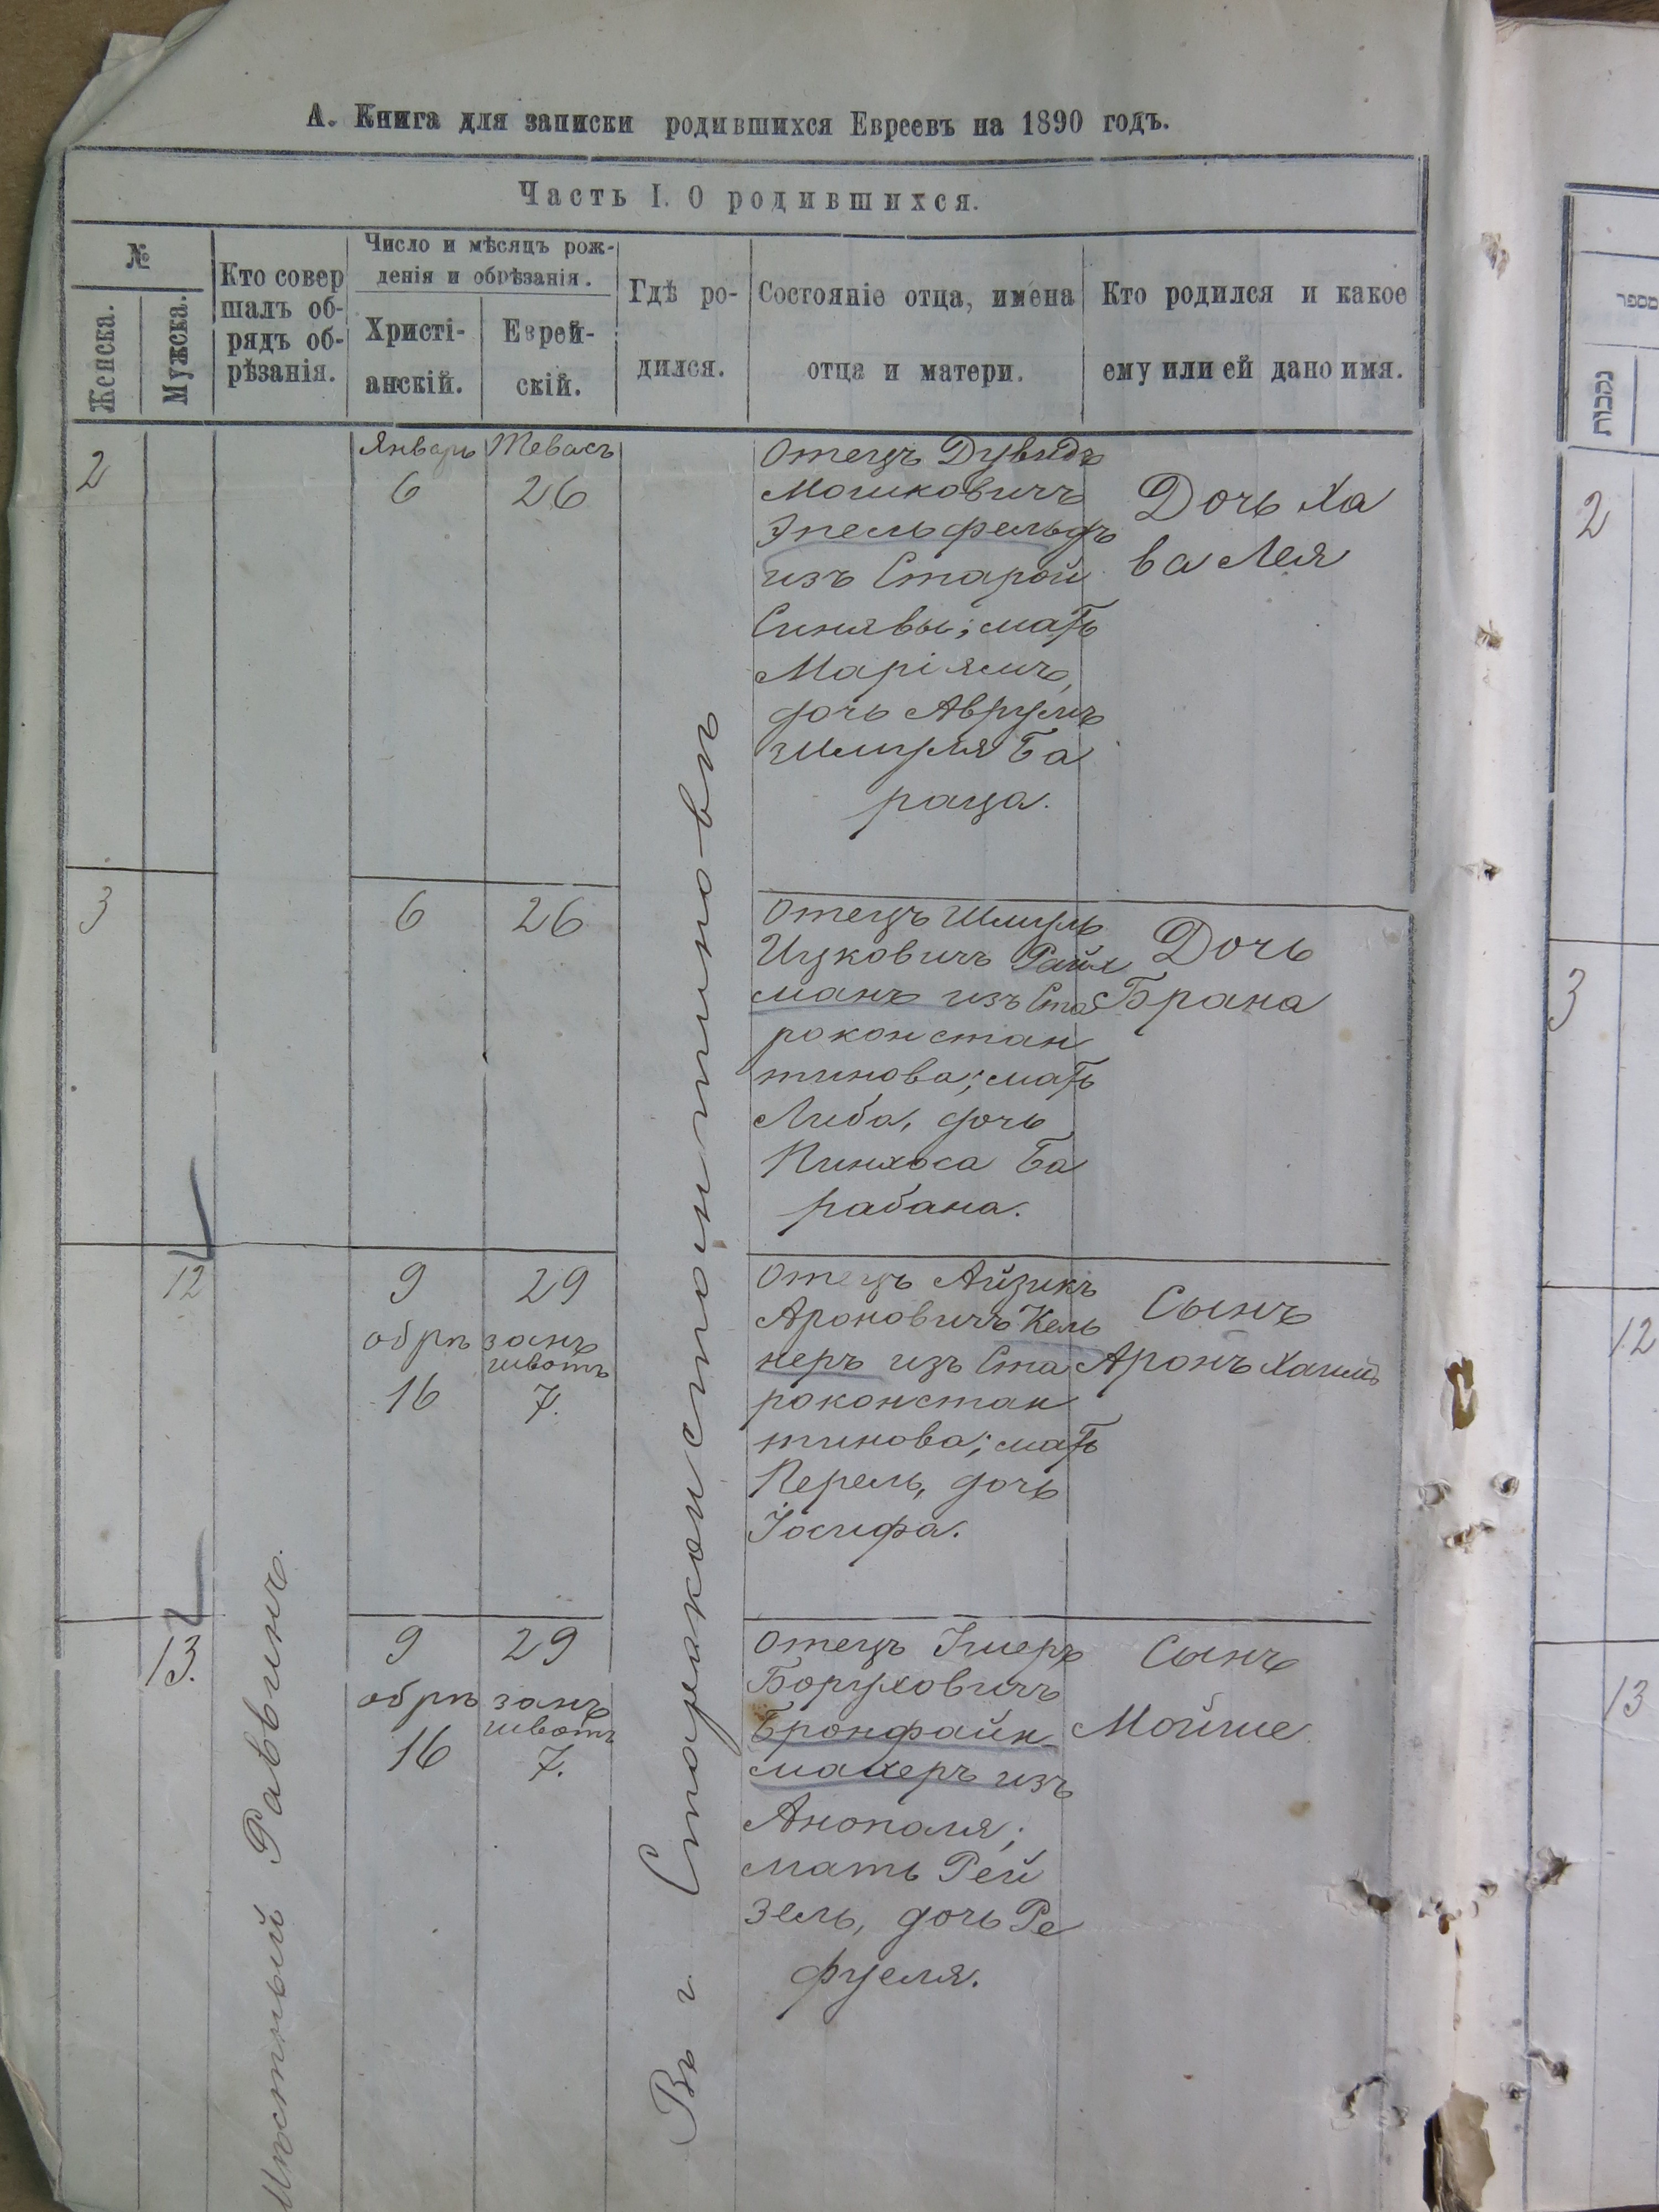 А. Книга для записки родившихся Евреевъ на 1890 годъ.
Часть I. О родившихся.
№
Женска.
Мужска.
Кто совер
шалъ об-
рядъ об-
рѣзанія.
Число и мѣсяцъ рож-
денія и обрѣзанія.
Христі-
анскій.
Еврей-
скій.
Гдѣ ро-
дился.
Состояніе отца, имена
отца и матери.
Кто родился и какое
ему или ей дано имя.
Мѣстный Раввинъ.
Въ г. Староконстантиновѣ
2
Январь Тевасъ
6 26
Отецъ Дувидъ
Мошковичъ
Эпельфельдъ
изъ Старой
Синявы; мать
Маріямъ,
дочь Аврумъ
Шмуля Ба
раца.
Дочь Ха
ва Лея
3
6 26
Отецъ Шмуль
Ицковичъ Райх
манъ изъ Ста
роконстан
тинова; мать
Либа, дочь
Пинхоса Ба
рабана.
Дочь
Брана
12
9 29
обрѣзанъ
шватъ
16 7.
Отецъ Айзикъ
Ароновичъ Кель
неръ изъ Ста
роконстан
тинова; мать
Перель, дочь
Іосифа.
Сынъ
Аронъ Хаимъ
13.
9 29
обрѣзанъ
шватъ
16 7.
Отецъ Ушеръ
Боруховичъ
Бронфайн-
махеръ изъ
Анополя;
мать Рей
зель, дочь Ре
фуеля.
Сынъ
Мойше
מספר
נקבות
2
3
12
13